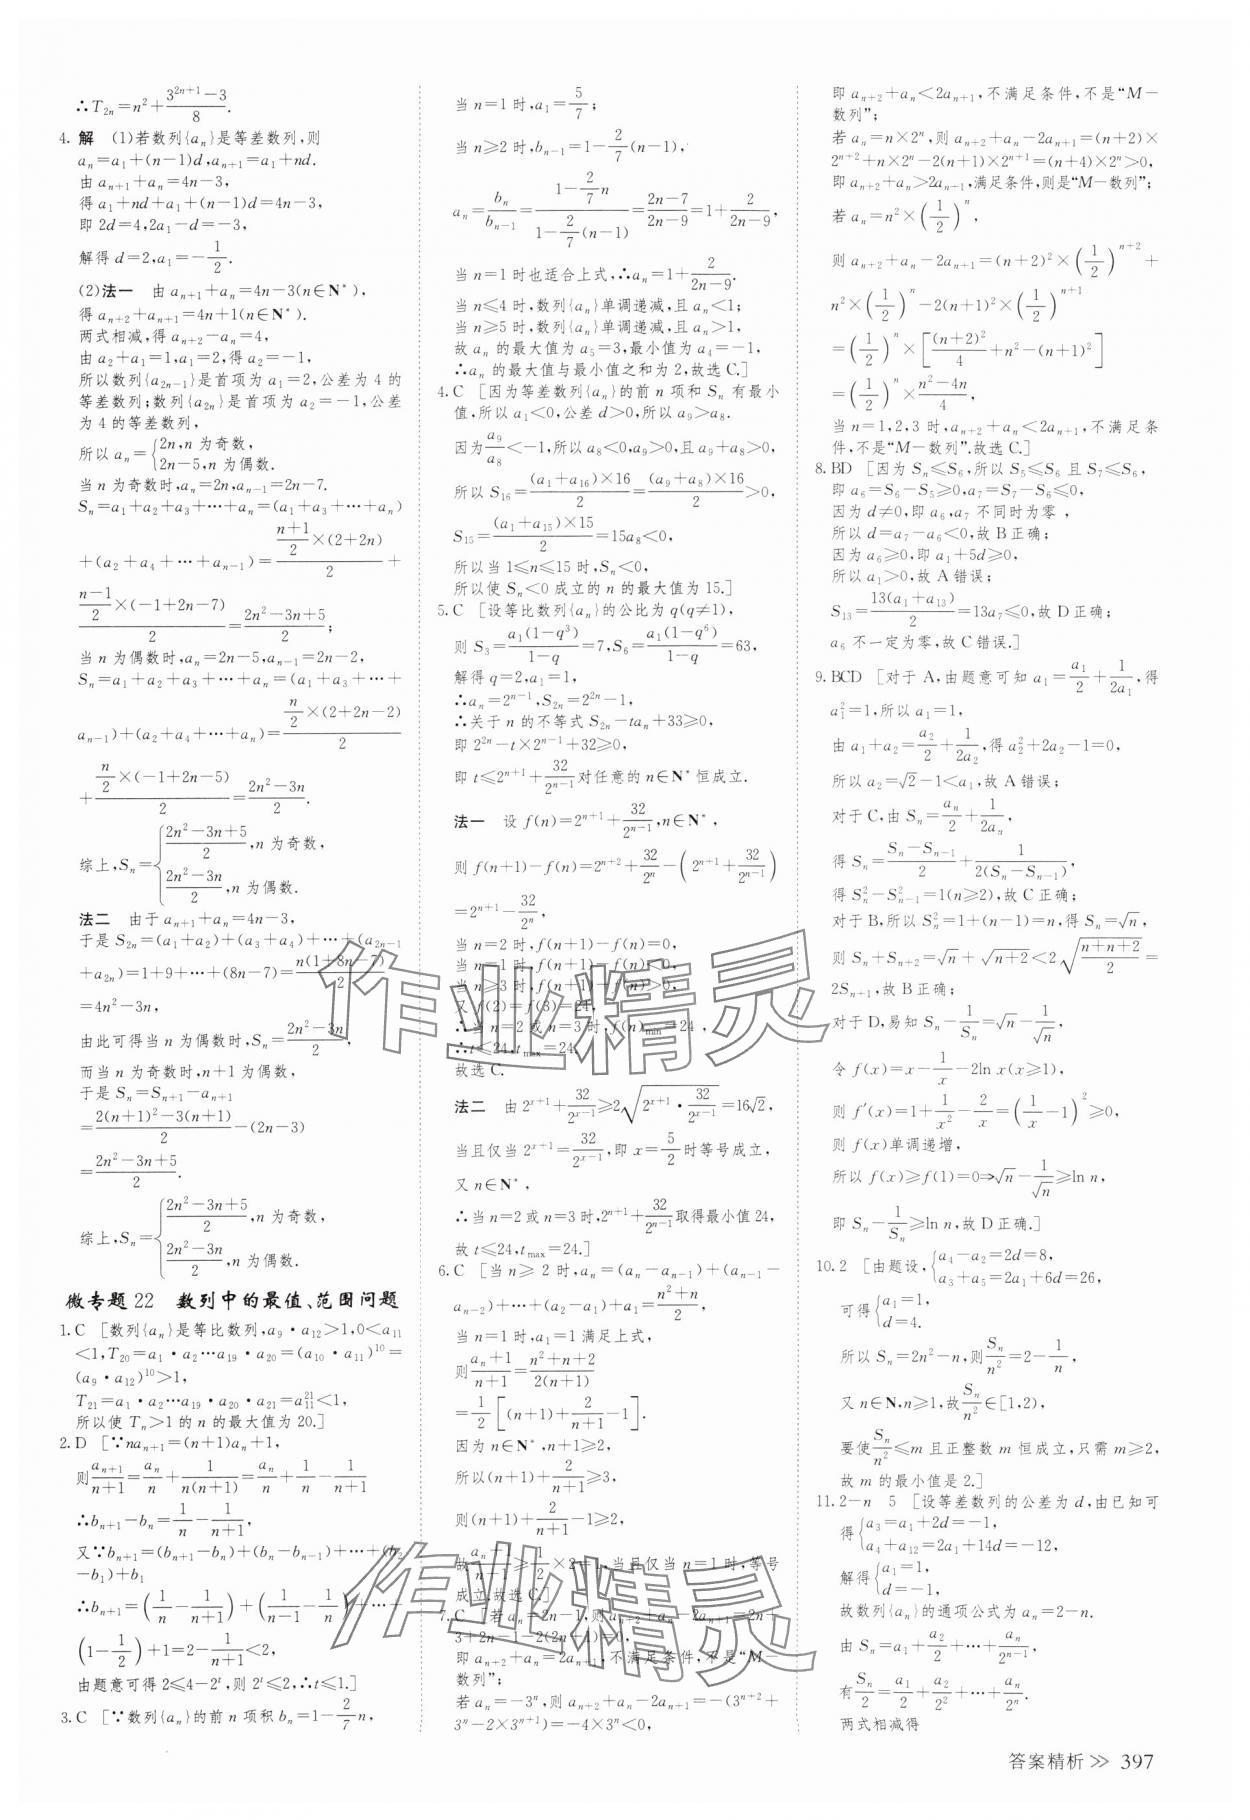 ∴T₂ₙ=n²+(3²ⁿ⁺¹-3)/8.
4.解 (1)若数列{aₙ}是等差数列,则
aₙ=a₁+(n-1)d,aₙ₊₁=a₁+nd.
由aₙ₊₁+aₙ=4n-3,
得a₁+nd+a₁+(n-1)d=4n-3,
即2d=4,2a₁-d=-3,
解得d=2,a₁=-1/2.
(2)法一 由aₙ₊₁+aₙ=4n-3(n∈N*),
得aₙ₊₂+aₙ₊₁=4n+1(n∈N*).
两式相减,得aₙ₊₂-aₙ=4,
由a₂+a₁=1,a₁=2,得a₂=-1,
所以数列{a₂ₙ₋₁}是首项为a₁=2,公差为4的
等差数列;数列{a₂ₙ}是首项为a₂=-1,公差
为4的等差数列,
所以aₙ={2n,n为奇数,
2n-5,n为偶数.
当n为奇数时,aₙ=2n,aₙ₋₁=2n-7.
Sₙ=a₁+a₂+a₃+⋯+aₙ=(a₁+a₃+⋯+aₙ)
+(a₂+a₄+⋯+aₙ₋₁)=((n+1)/2×(2+2n))/2+
((n-1)/2×(-1+2n-7))/2=(2n²-3n+5)/2;
当n为偶数时,aₙ=2n-5,aₙ₋₁=2n-2,
Sₙ=a₁+a₂+a₃+⋯+aₙ=(a₁+a₃+⋯+
aₙ₋₁)+(a₂+a₄+⋯+aₙ)=(n/2×(2+2n-2))/2
+(n/2×(-1+2n-5))/2=(2n²-3n)/2.
综上,Sₙ={(2n²-3n+5)/2,n为奇数,
(2n²-3n)/2,n为偶数.
法二 由于aₙ₊₁+aₙ=4n-3,
于是S₂ₙ=(a₁+a₂)+(a₃+a₄)+⋯+(a₂ₙ₋₁
+a₂ₙ)=1+9+⋯+(8n-7)=n(1+8n-7)/2
=4n²-3n,
由此可得当n为偶数时,Sₙ=(2n²-3n)/2,
而当n为奇数时,n+1为偶数,
于是Sₙ=Sₙ₊₁-aₙ₊₁
=(2(n+1)²-3(n+1))/2-(2n-3)
=(2n²-3n+5)/2.
综上,Sₙ={(2n²-3n+5)/2,n为奇数,
(2n²-3n)/2,n为偶数.
微专题22 数列中的最值、范围问题
1.C [数列{aₙ}是等比数列,a₉·a₁₂>1,0<a₁₁
<1,T₂₀=a₁·a₂⋯a₁₉·a₂₀=(a₁₀·a₁₁)¹⁰=
(a₉·a₁₂)¹⁰>1,
T₂₁=a₁·a₂⋯a₁₉·a₂₀·a₂₁=a₁₁²¹<1,
所以使Tₙ>1的n的最大值为20.]
2.D [∵naₙ₊₁=(n+1)aₙ+1,
则aₙ₊₁/(n+1)=aₙ/n+1/(n(n+1))=aₙ/n+1/n-1/(n+1),
∴bₙ₊₁-bₙ=1/n-1/(n+1),
又∵bₙ₊₁=(bₙ₊₁-bₙ)+(bₙ-bₙ₋₁)+⋯+(b₂
-b₁)+b₁
∴bₙ₊₁=(1/n-1/(n+1))+(1/(n-1)-1/n)+⋯+
(1-1/2)+1=2-1/(n+1)<2,
由题意可得2≤4-2ᵗ,则2ᵗ≤2,∴t≤1.]
3.C [∵数列{aₙ}的前n项积bₙ=1-(2/7)n,
当n=1时,a₁=5/7;
当n≥2时,bₙ₋₁=1-(2/7)(n-1),
aₙ=bₙ/bₙ₋₁=(1-(2/7)n)/(1-(2/7)(n-1))=(2n-7)/(2n-9)=1+2/(2n-9),
当n=1时也适合上式,∴aₙ=1+2/(2n-9).
当n≤4时,数列{aₙ}单调递减,且aₙ<1;
当n≥5时,数列{aₙ}单调递减,且aₙ>1,
故aₙ的最大值为a₅=3,最小值为a₄=-1,
∴aₙ的最大值与最小值之和为2,故选C.]
4.C [因为等差数列{aₙ}的前n项和Sₙ有最小
值,所以a₁<0,公差d>0,所以a₉>a₈.
因为a₉/a₈<-1,所以a₈<0,a₉>0,且a₉+a₈>0,
所以S₁₆=((a₁+a₁₆)×16)/2=((a₉+a₈)×16)/2>0,
S₁₅=((a₁+a₁₅)×15)/2=15a₈<0,
所以当1≤n≤15时,Sₙ<0,
所以使Sₙ<0成立的n的最大值为15.]
5.C [设等比数列{aₙ}的公比为q(q≠1),
则S₃=a₁(1-q³)/(1-q)=7,S₆=a₁(1-q⁶)/(1-q)=63,
解得q=2,a₁=1,
∴aₙ=2ⁿ⁻¹,S₂ₙ=2²ⁿ-1,
∴关于n的不等式S₂ₙ-taₙ+33≥0,
即2²ⁿ-t×2ⁿ⁻¹+32≥0,
即t≤2ⁿ⁺¹+32/2ⁿ⁻¹对任意的n∈N*恒成立.
法一 设f(n)=2ⁿ⁺¹+32/2ⁿ⁻¹,n∈N*,
则f(n+1)-f(n)=2ⁿ⁺²+32/2ⁿ-(2ⁿ⁺¹+32/2ⁿ⁻¹)
=2ⁿ⁺¹-32/2ⁿ,
当n=2时,f(n+1)-f(n)=0,
当n=1时,f(n+1)-f(n)<0,
当n≥3时,f(n+1)+f(n)>0,
又f(2)=f(3)=24,
∴当n=2或n=3时,f(n)min=24,
∴t≤24,tmax=24,
故选C.
法二 由2ˣ⁺¹+32/2ˣ⁻¹≥2√(2ˣ⁺¹·32/2ˣ⁻¹)=16√2,
当且仅当2ˣ⁺¹=32/2ˣ⁻¹,即x=5/2时等号成立,
又n∈N*,
∴当n=2或n=3时,2ⁿ⁺¹+32/2ⁿ⁻¹取得最小值24,
故t≤24,tmax=24.]
6.C [当n≥2时,aₙ=(aₙ-aₙ₋₁)+(aₙ₋₁-
aₙ₋₂)+⋯+(a₂-a₁)+a₁=(n²+n)/2,
当n=1时,a₁=1满足上式,
则(aₙ+1)/(n+1)=(n²+n+2)/(2(n+1))
=1/2[(n+1)+2/(n+1)-1].
因为n∈N*,n+1≥2,
所以(n+1)+2/(n+1)≥3,
则(n+1)+2/(n+1)-1≥2,
故(aₙ+1)/(n+1)≥1/2×2=1,当且仅当n=1时,等号
成立.故选C.]
7.C [若aₙ=2n-1,则aₙ₊₂+aₙ-2aₙ₊₁=2n+
3+2n-1-2(2n+1)=0,
即aₙ₊₂+aₙ=2aₙ₊₁,不满足条件,不是“M-
数列”;
若aₙ=-3ⁿ,则aₙ₊₂+aₙ-2aₙ₊₁=-(3ⁿ⁺²+
3ⁿ-2×3ⁿ⁺¹)=-4×3ⁿ<0,
即aₙ₊₂+aₙ<2aₙ₊₁,不满足条件,不是“M-
数列”;
若aₙ=n×2ⁿ,则aₙ₊₂+aₙ-2aₙ₊₁=(n+2)×
2ⁿ⁺²+n×2ⁿ-2(n+1)×2ⁿ⁺¹=(n+4)×2ⁿ>0,
即aₙ₊₂+aₙ>2aₙ₊₁,满足条件,则是“M-数列”;
若aₙ=n²×(1/2)ⁿ,
则aₙ₊₂+aₙ-2aₙ₊₁=(n+2)²×(1/2)ⁿ⁺²+
n²×(1/2)ⁿ-2(n+1)²×(1/2)ⁿ⁺¹
=(1/2)ⁿ×[(n+2)²/4+n²-(n+1)²]
=(1/2)ⁿ×(n²-4n)/4,
当n=1,2,3时,aₙ₊₂+aₙ<2aₙ₊₁,不满足条
件,不是“M-数列”.故选C.]
8.BD [因为Sₙ≤S₆,所以S₅≤S₆且S₇≤S₆,
即a₆=S₆-S₅≥0,a₇=S₇-S₆≤0,
因为d≠0,即a₆,a₇不同时为零,
所以d=a₇-a₆<0,故B正确;
因为a₆≥0,即a₁+5d≥0,
所以a₁>0,故A错误;
S₁₃=13(a₁+a₁₃)/2=13a₇≤0,故D正确;
a₆不一定为零,故C错误.]
9.BCD [对于A,由题意可知a₁=a₁/2+1/(2a₁),得
a₁²=1,所以a₁=1,
由a₁+a₂=a₂/2+1/(2a₂),得a₂²+2a₂-1=0,
所以a₂=√2-1<a₁,故A错误;
对于C,由Sₙ=aₙ/2+1/(2aₙ),
得Sₙ=(Sₙ-Sₙ₋₁)/2+1/(2(Sₙ-Sₙ₋₁)),
得Sₙ²-Sₙ₋₁²=1(n≥2),故C正确;
对于B,所以Sₙ²=1+(n-1)=n,得Sₙ=√n,
则Sₙ+Sₙ₊₂=√n+√(n+2)<2√((n+n+2)/2)=
2Sₙ₊₁,故B正确;
对于D,易知Sₙ-1/Sₙ=√n-1/√n,
令f(x)=x-1/x-2ln x(x≥1),
则f′(x)=1+1/x²-2/x=(1/x-1)²≥0,
则f(x)单调递增,
所以f(x)≥f(1)=0⇒√n-1/√n≥ln n,
即Sₙ-1/Sₙ≥ln n,故D正确.]
10.2 [由题设,{a₄-a₂=2d=8,
a₃+a₅=2a₁+6d=26,
可得{a₁=1,
d=4.
所以Sₙ=2n²-n,则Sₙ/n²=2-1/n,
又n∈N,n≥1,故Sₙ/n²∈[1,2),
要使Sₙ/n²≤m且正整数m恒成立,只需m≥2,
故m的最小值是2.]
11.2-n 5 [设等差数列的公差为d,由已知可
得{a₃=a₁+2d=-1,
a₄+a₁₂=2a₁+14d=-12,
解得{a₁=1,
d=-1,
故数列{aₙ}的通项公式为aₙ=2-n.
由Sₙ=a₁+a₂/2+⋯+aₙ/2ⁿ⁻¹,
有Sₙ/2=a₁/2+a₂/2²+⋯+aₙ/2ⁿ.
两式相减得
答案精析>> 397
作业精灵
作业精灵